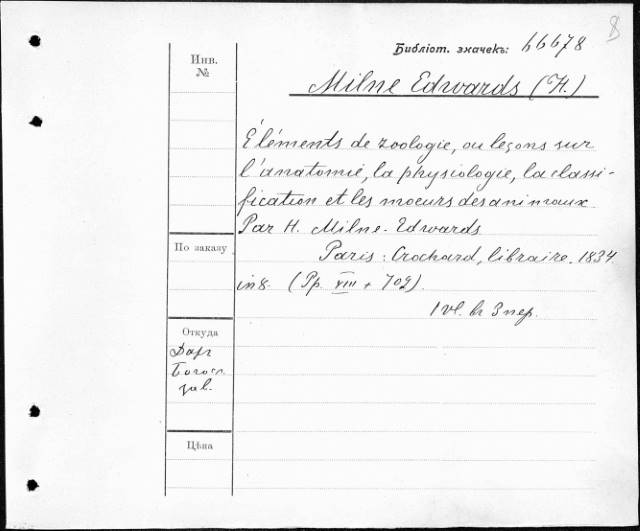 8
Библіот. значекъ: 66678
Инв.
№
Milne Edwards (H.)
Éléments de zoologie, ou leçons sur
l'anatomie, la physiologie, la classi-
fication et les moeurs des animaux
Par H. Milne-Edwards
По заказу
Paris: Crochard, libraire. 1834.
in 8. (Pp. VIII + 709).
1 vl. in 3 пер.
Откуда
Даръ
Богосл
зав.
Цѣна